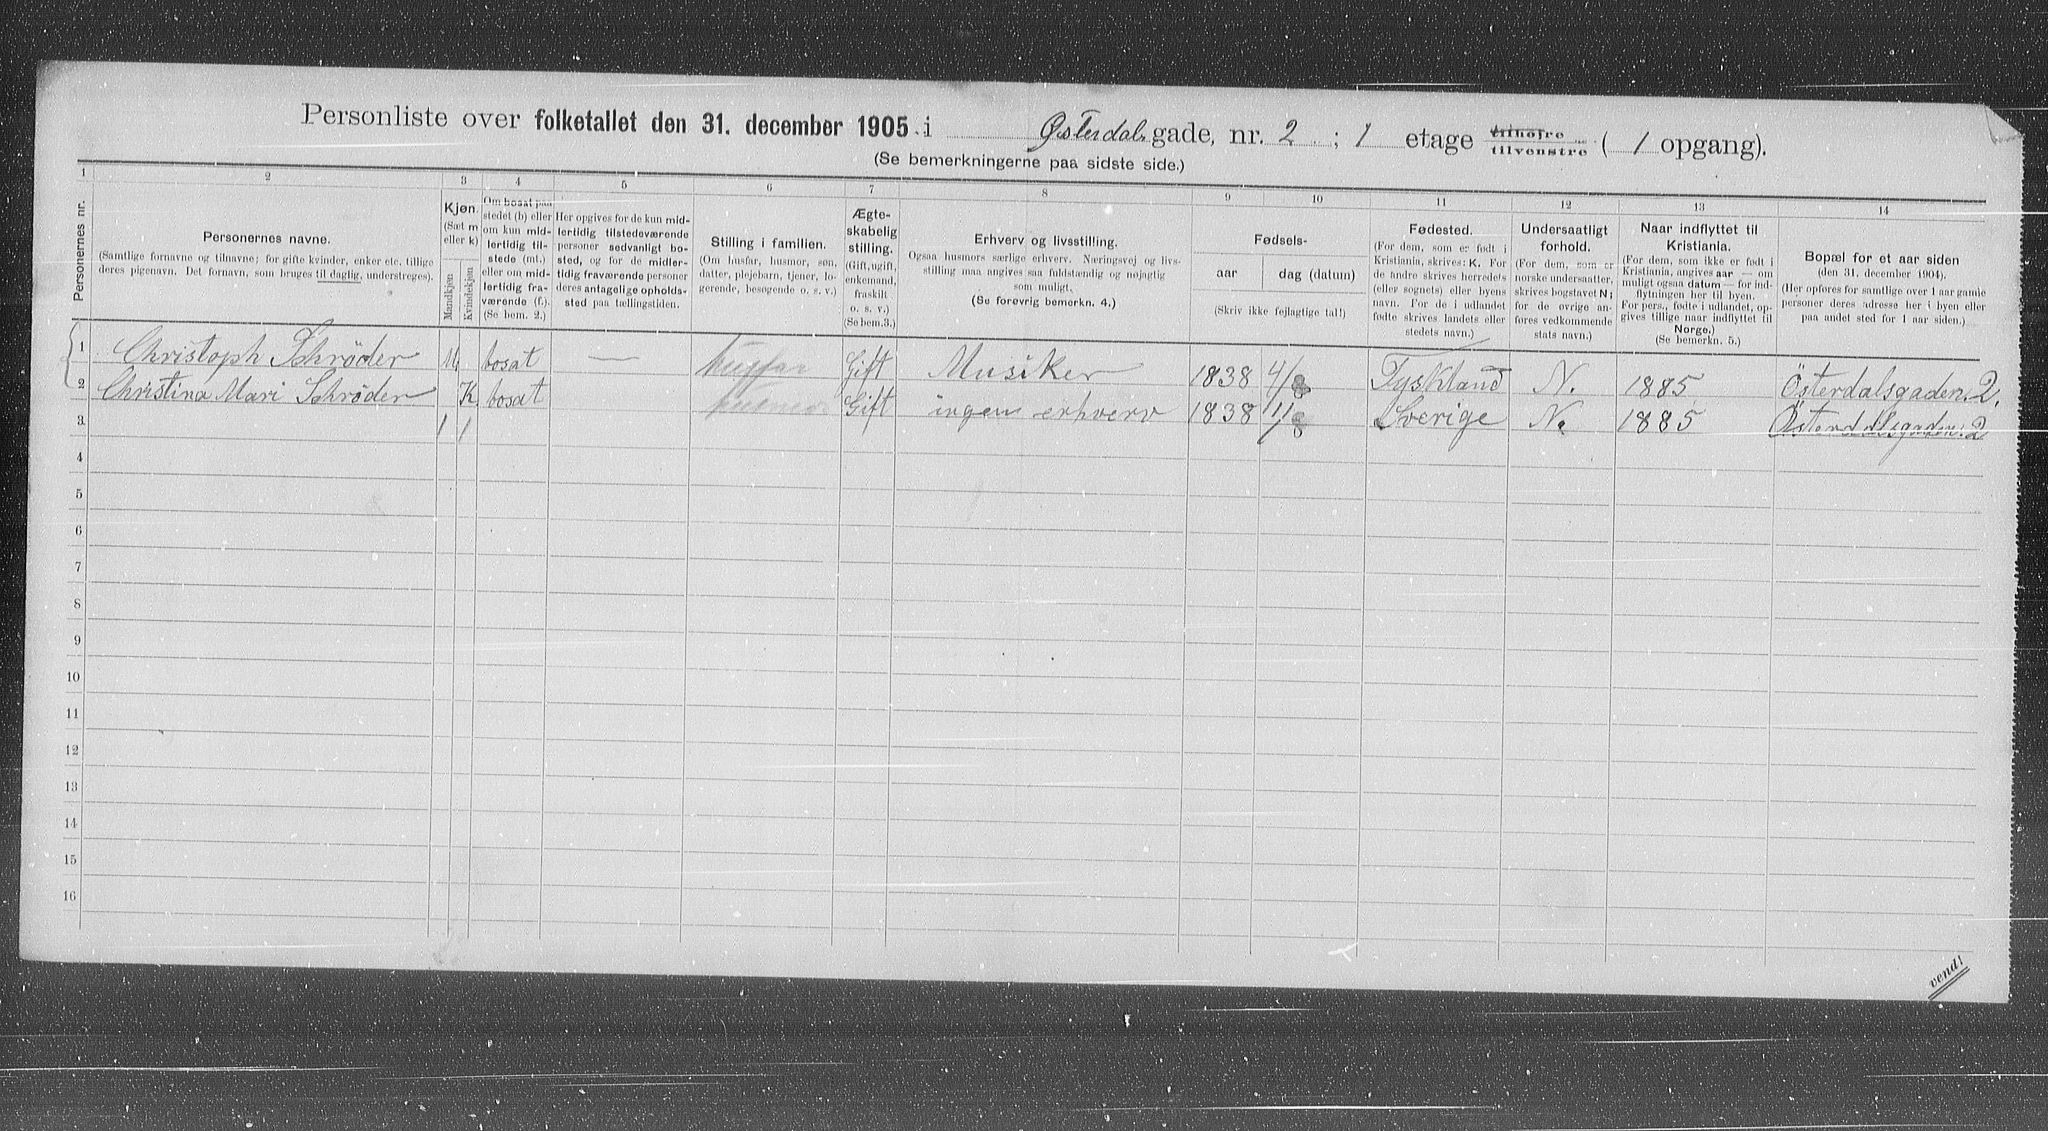 Personliste over folketallet den 31. december 1905 i Østerdals gade, nr. 2 ; 1 etage tilhøire tilvenstre ( 1 opgang).
(Se bemerkningerne paa sidste side.)
1 2 3 4 5 6 7 8 9 10 11 12 13 14
Personernes nr.
Personernes navne.
(Samtlige fornavne og tilnavne; for gifte kvinder, enker etc. tillige
deres pigenavn. Det fornavn, som bruges til daglig, understreges).
Kjøn.
(Sæt m
eller k)
Mandkjøn
Kvindekjøn
Om bosat paa
stedet (b) eller
om kun mid-
lertidig til-
stede (mt.)
eller om mid-
lertidig fra-
værende (f.).
(Se bem. 2.)
Her opgives for de kun mid-
lertidig tilstedeværende
personer sedvanligt bo-
sted, og for de midler-
tidig fraværende personer
deres antagelige opholds-
sted paa tællingstiden.
Stilling i familien.
(Om husfar, husmor, søn,
datter, plejebarn, tjener, lo-
gerende, besøgende o. s. v.)
Ægte-
skabelig
stilling.
(Gift, ugift,
enkemand,
fraskilt
o. s. v.)
(Se bem. 3.)
Erhverv og livsstilling.
Ogsaa husmors særlige erhverv. Næringsvej og livs-
stilling maa angives saa fuldstændig og nøjagtig
som muligt.
(Se forøvrig bemerkn. 4.)
Fødsels-
aar
dag (datum)
(Skriv ikke fejlagtige tal!)
Fødested.
(For dem, som er født i
Kristiania, skrives: K. For
de andre skrives herredets
(eller sognets) eller byens
navn. For de i udlandet
fødte skrives landets eller
stedets navn.)
Undersaatligt
forhold.
(For dem, som er
norske undersaatter,
skrives bogstavet N;
for de øvrige an-
føres vedkommende
stats navn.)
Naar indflyttet til
Kristiania.
(For dem, som ikke er født i
Kristiania, angives aar — om
muligt ogsaa datum — for ind-
flytningen her til byen.
For pers., fødte i udlandet, op-
gives tillige naar indflyttet til
Norge.)
(Se bemerkn. 5.)
Bopæl for et aar siden
(den 31. december 1904).
(Her opføres for samtlige over 1 aar gamle
personer deres adresse her i byen eller
paa andet sted for 1 aar siden.)
1 Christoph Schrøder M. bosat — husfar Gift Musiker 1838 4/8 Tyskland N. 1885 Österdalsgaden. 2.
2 Christina Mari Schrøder K. bosat husmor Gift ingen erhverv 1838 11/8 Sverige N. 1885 Österdalsgaden. 2
3 1 1
4
5
6
7
8
9
10
11
12
13
14
15
16
vend!